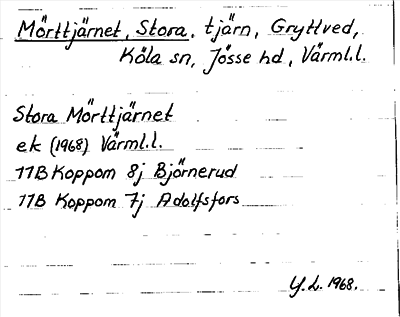 Mörttjärnet, Stora, tjärn, Gryttved,
Köla sn, Jösse hd, Värml.l.
Stora Mörttjärnet
ek (1968) Värml.l.
11B Koppom 8j Björnerud
11B Koppom 7j Adolfsfors
Y.L. 1968.